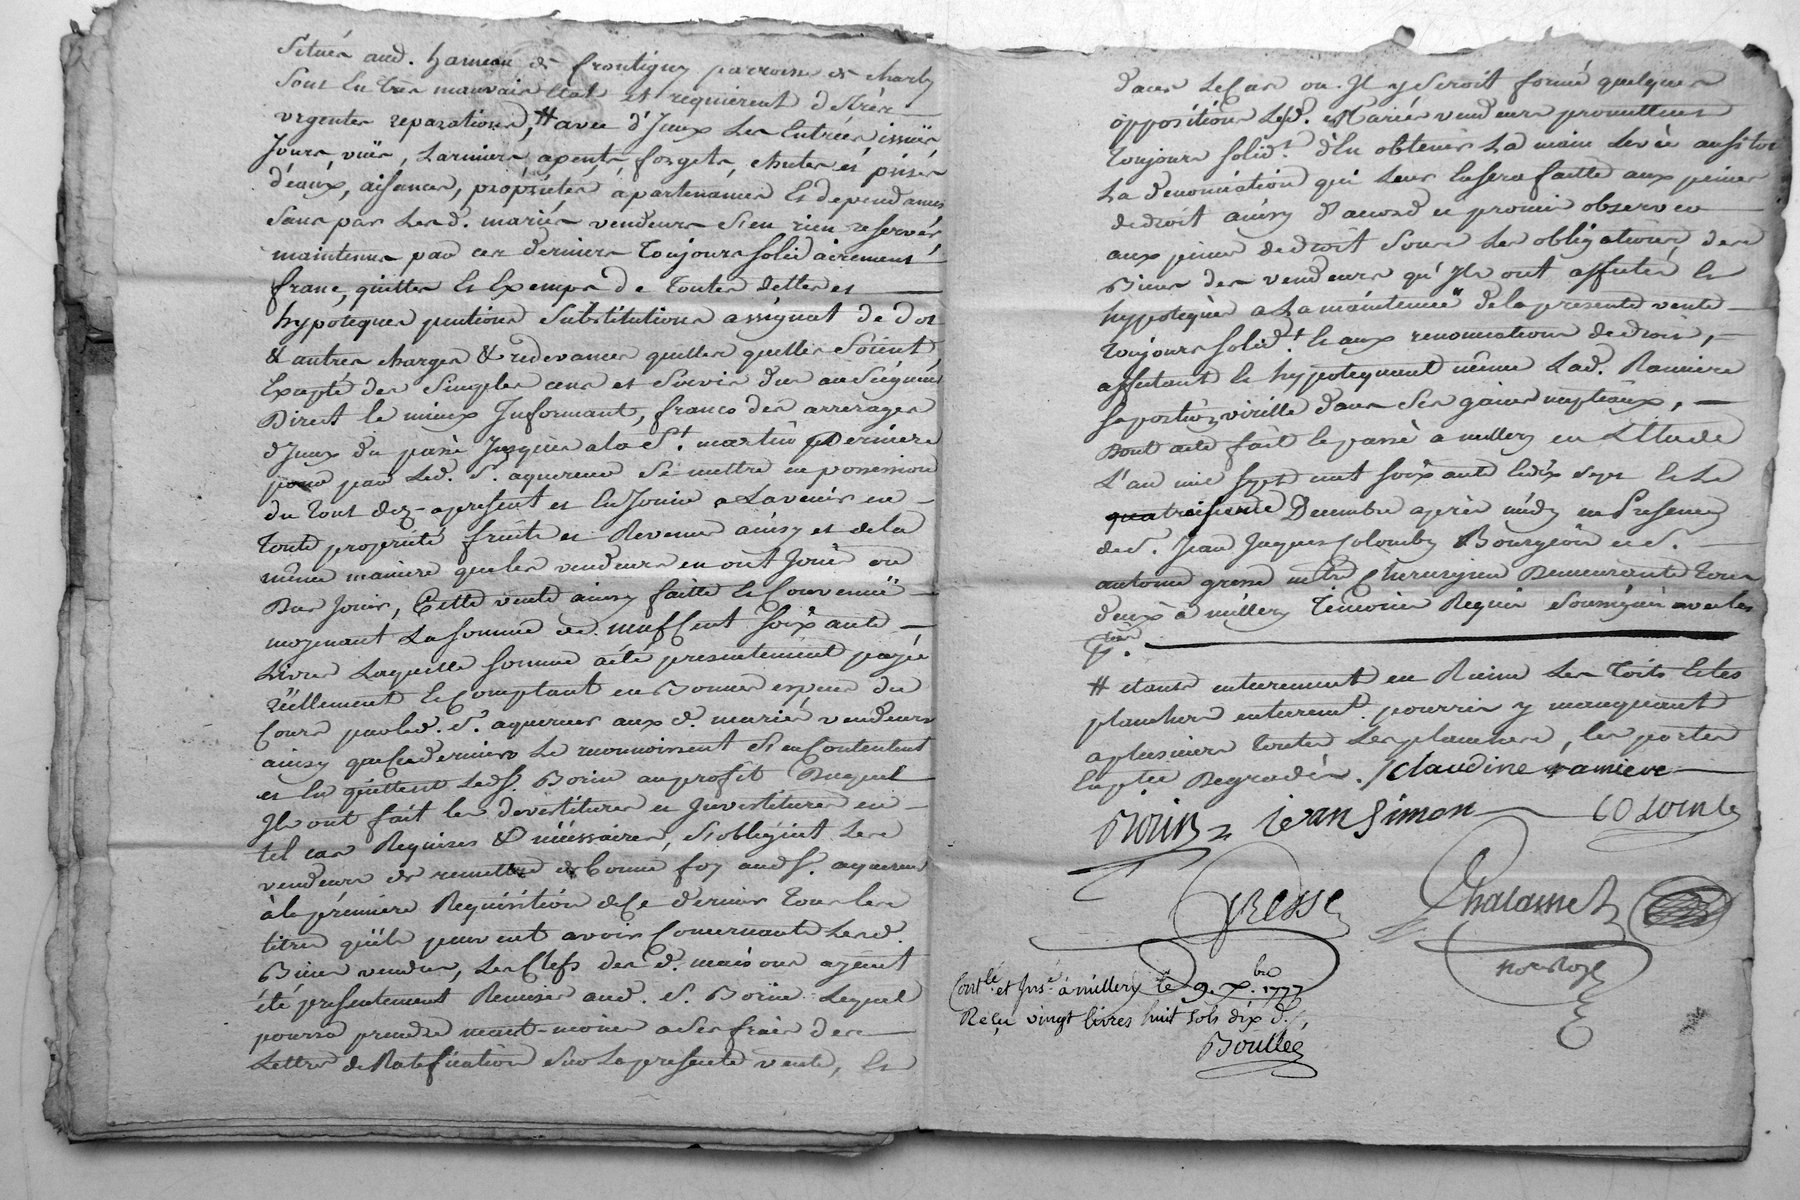 Situés aud. hameau de frontigny parroisse de charly
Sont En très mauvais Etat et requierent détrès
urgentes reparations, # avec d'Jceux Les Entrées, issües
Jours, vües, Larmiers, apents, forgets, chutes et prises
d'eaux, aisances, propriétés apartenances Et dependances
Sans par Lesd. mariés vendeurs S'en rien reserver
maintenus par ces derniers Toujours solidairement
franc, quittes Et Exemps de Toutes dettes et
hypoteques pentions Substitutions assignat de dot
& autres charges & redevances quelles quelles Soient
Excepté des Simples cens et Servis dus au Seigneur
Direct le mieux Jnformant, francs des arrerages
d'Jceux du passé Jusques ala St. martin Derniere
pour par Led. S. aquereur Se mettre en possession
du Tout dez-apresent et En Jouir a Lavenir en
Toute propriété fruits et Revenus ainsy et dela
même maniere que les vendeurs en ont Joüi ou
Dus Jouir, Cette vente ainsy faitte et Convenüe
moyenant La somme de neuf Cent soixante
Livres Laquelle somme aété presentement payée
réellement Et Comptant en Bonnes especes du
Cours par led. S. aquereur aux d. mariés vendeurs
ainsy que Ces derniers Le reconnoissent S'en Contentent
et En quittent Led S. Borin au profit Duquel
Jls ont fait les devestitures et Jnvestitures en
tel cas Requises & nécessaires, S'obligent Les
vendeurs de remettre de bonne foy aud S. aquereur
à la premiere Requisition de Ce dernier Tous les
titres qu'ils peuvent avoir Concernants Lesd.
Biens vendus, Les Clefs des d. maisons ayent
été presentement Remises aud. S. Borin Lequel
pourra prendre neant-moins a Ses frais des
Lettres de Ratification Sur La presente vente, Et
dans Le Cas ou Jl y Seroit formé quelques
oppositions Lesd. Mariés vendeurs promettent
Toujours solidt. d'En obtenir La main Levée ausitot
La dénonciation qui Leur En sera faitte aux peines
de droit ainsy D'acord et promis observer
aux peines de droit Sous Les obligations des
Biens des vendeurs qu'Jls ont affectés Et
hypotéqués a La maintenüe dela presente vente
Toujours solidt. Et aux renonciations de droit,
affectant Et hypotequant même Lad. Ramiere
sa portion virille dans Ses gains nuptiaux,
Dont acte fait Et passé a millery en L'Etude
L'an mil sept cent soixante Et dix sept Et Le
troisieme Decembre après midy en Presence
de S. Jean Jaques Colomby Bourgeois et S.
antoine gresse mtre Chirurgien Demeurants Tous
deux à millery Temoins Requis Soussignés avec les
pties.
# etants entierement en Ruine Les Toits Et Les
planchers entieremt. pourris y manquant
a plusieurs Toutes Les planches, les portes
Claudine ramiere
Borin jean Simon Colomby
Gresse Chalamel
notr Roy
Contlé. et Jnsé. à millery le 9. Xbre. 1777
Reçu vingt livres huit sols dix d.
Boullee